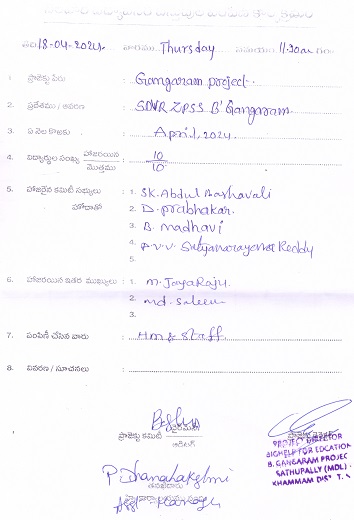 తేది 18-04-2024 వారము Thursday సమయం 11-30am గం॥
1. ప్రాజెక్టు పేరు : Gangaram project.
2. ప్రదేశము / ఆవరణ : SDVR ZPSS B' Gangaram
3. ఏ నెల కొఱకు : April, 2024.
4. విద్యార్థుల సంఖ్య హాజరయిన / మొత్తము : 10/10
5. హాజరైన కమిటీ సభ్యులు : 1. SK. Abdul Bashavali
హోదాతో 2. D. prabhakar.
3. B. madhavi
4. P.V.V. Satyanarayana Reddy
5.
6. హాజరయిన ఇతర ముఖ్యులు : 1. M. JayaRaju.
2. md. Saleem
3.
7. పంపిణీ చేసిన వారు : HM & Staff
8. వివరణ / సూచనలు :
ప్రాజెక్ట్ కమిటీ
PROJECT DIRECTOR
BIGHELP FOR EDCATION
B. GANGARAM PROJEC
SATHUPALLY (MDL)
KHAMMAM DIST T.
P. Dhanalakshmi